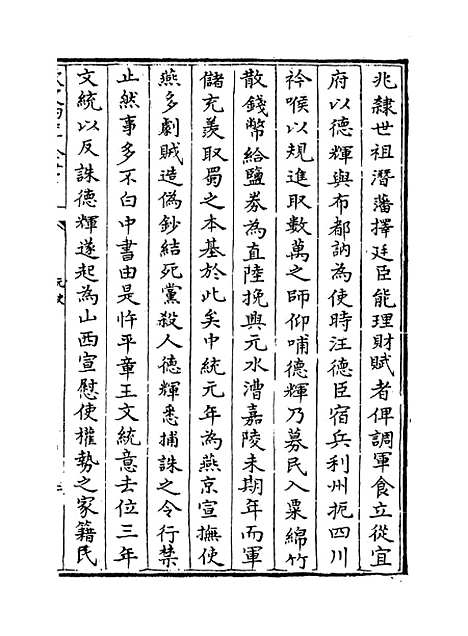 兆隷世祖潛藩擇廷臣能理財賦者俾調軍食立從宜
府以德輝與布都訥為使時汪德臣宿兵利州扼四川
衿喉以規進取數萬之師仰哺德輝乃募民入粟綿竹
散錢幣給鹽券為直陸挽興元水漕嘉陵未期年而軍
儲充羡取蜀之本基於此矣中統元年為燕京宣撫使
燕多劇賊造偽鈔結死黨殺人德輝悉捕誅之令行禁
止然事多不白中書由是忤平章王文統意去位三年
文統以反誅德輝遂起為山西宣慰使權勢之家籍民
元史